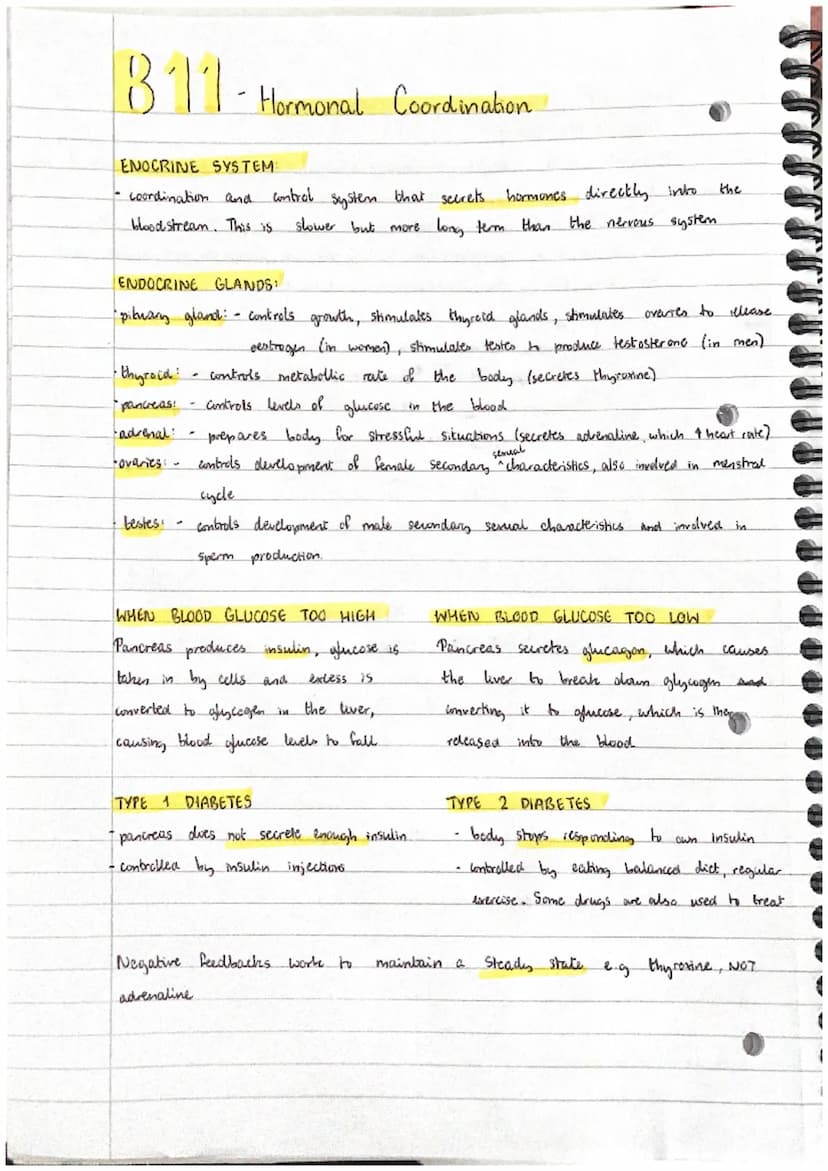 B11 - Hormonal Coordination
ENOCRINE SYSTEM:
- coordination and control system that secrets hormones directly into the
bloodstream. This is slower but more long term than the nervous system
ENDOCRINE GLANDS:
· pituary gland: - controls growth, stimulates thyroid glands, stimulates ovaries to release
oestrogen (in women), stimulates testes to produce testosterone (in men)
· thyroid: - controls metabollic rate of the body (secretes thyroxine)
· pancreas: - controls levels of glucose in the blood
· adrenal: - prepares body for stressful situations (secretes adrenaline, which ↑ heart rate)
· ovaries: - controls development of female secondary ^sexual characteristics, also involved in menstral
cycle
· testes: - controls development of male secondary sexual characteristics and involved in
sperm production.
WHEN BLOOD GLUCOSE TOO HIGH
Pancreas produces insulin, glucose is
taken in by cells and excess is
converted to glycogen in the liver,
causing blood glucose levels to fall
WHEN BLOOD GLUCOSE TOO LOW
Pancreas secretes glucagon, which causes
the liver to break down glycogen and
converting it to glucose, which is then
released into the blood
TYPE 1 DIABETES
- pancreas does not secrete enough insulin
- controlled by insulin injections
TYPE 2 DIABETES
- body stops responding to own insulin
- controlled by eating balanced diet, regular
exercise. Some drugs are also used to treat
Negative feedbacks work to maintain a steady state e.g thyroxine, NOT
adrenaline